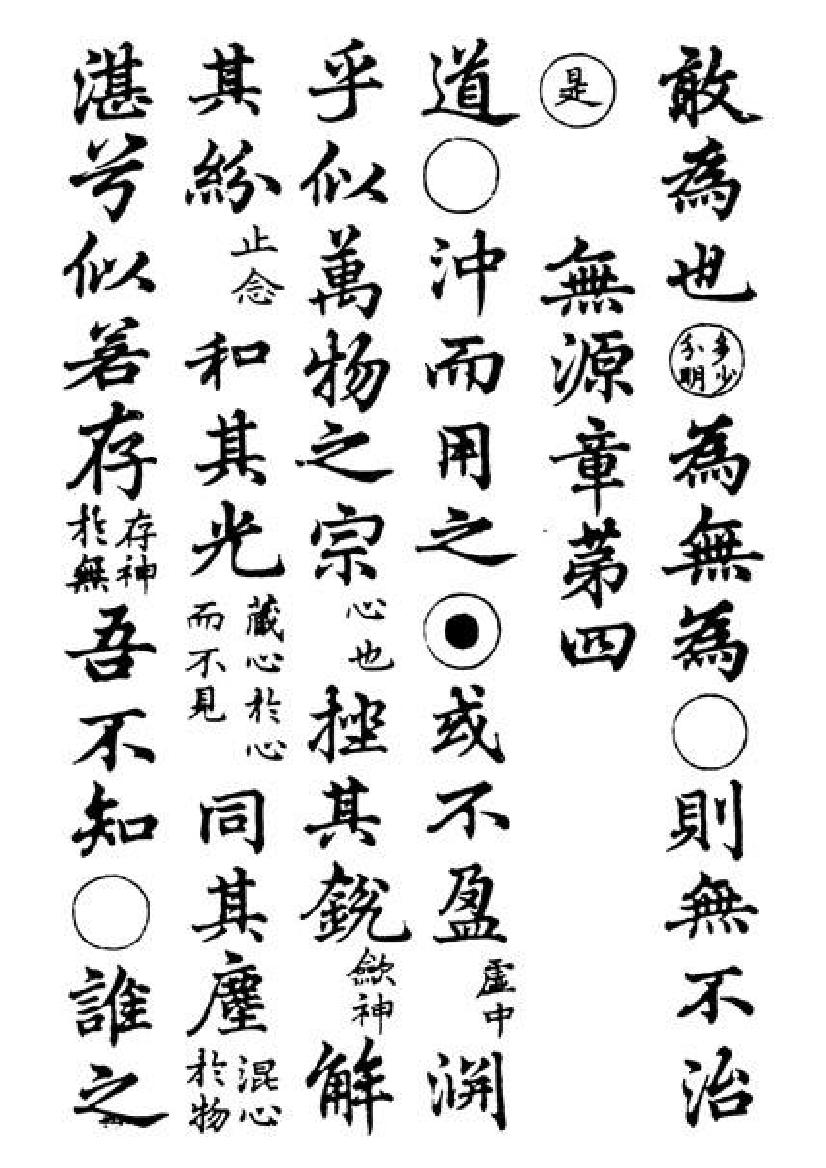 敢為也多少分明為無為○則無不治
是 無源章第四
道○沖而用之◉或不盈虛中淵
乎似萬物之宗心也挫其銳歛神解
其紛止念和其光藏心於心而不見同其塵混心於物
湛兮似若存存神於無吾不知○誰之